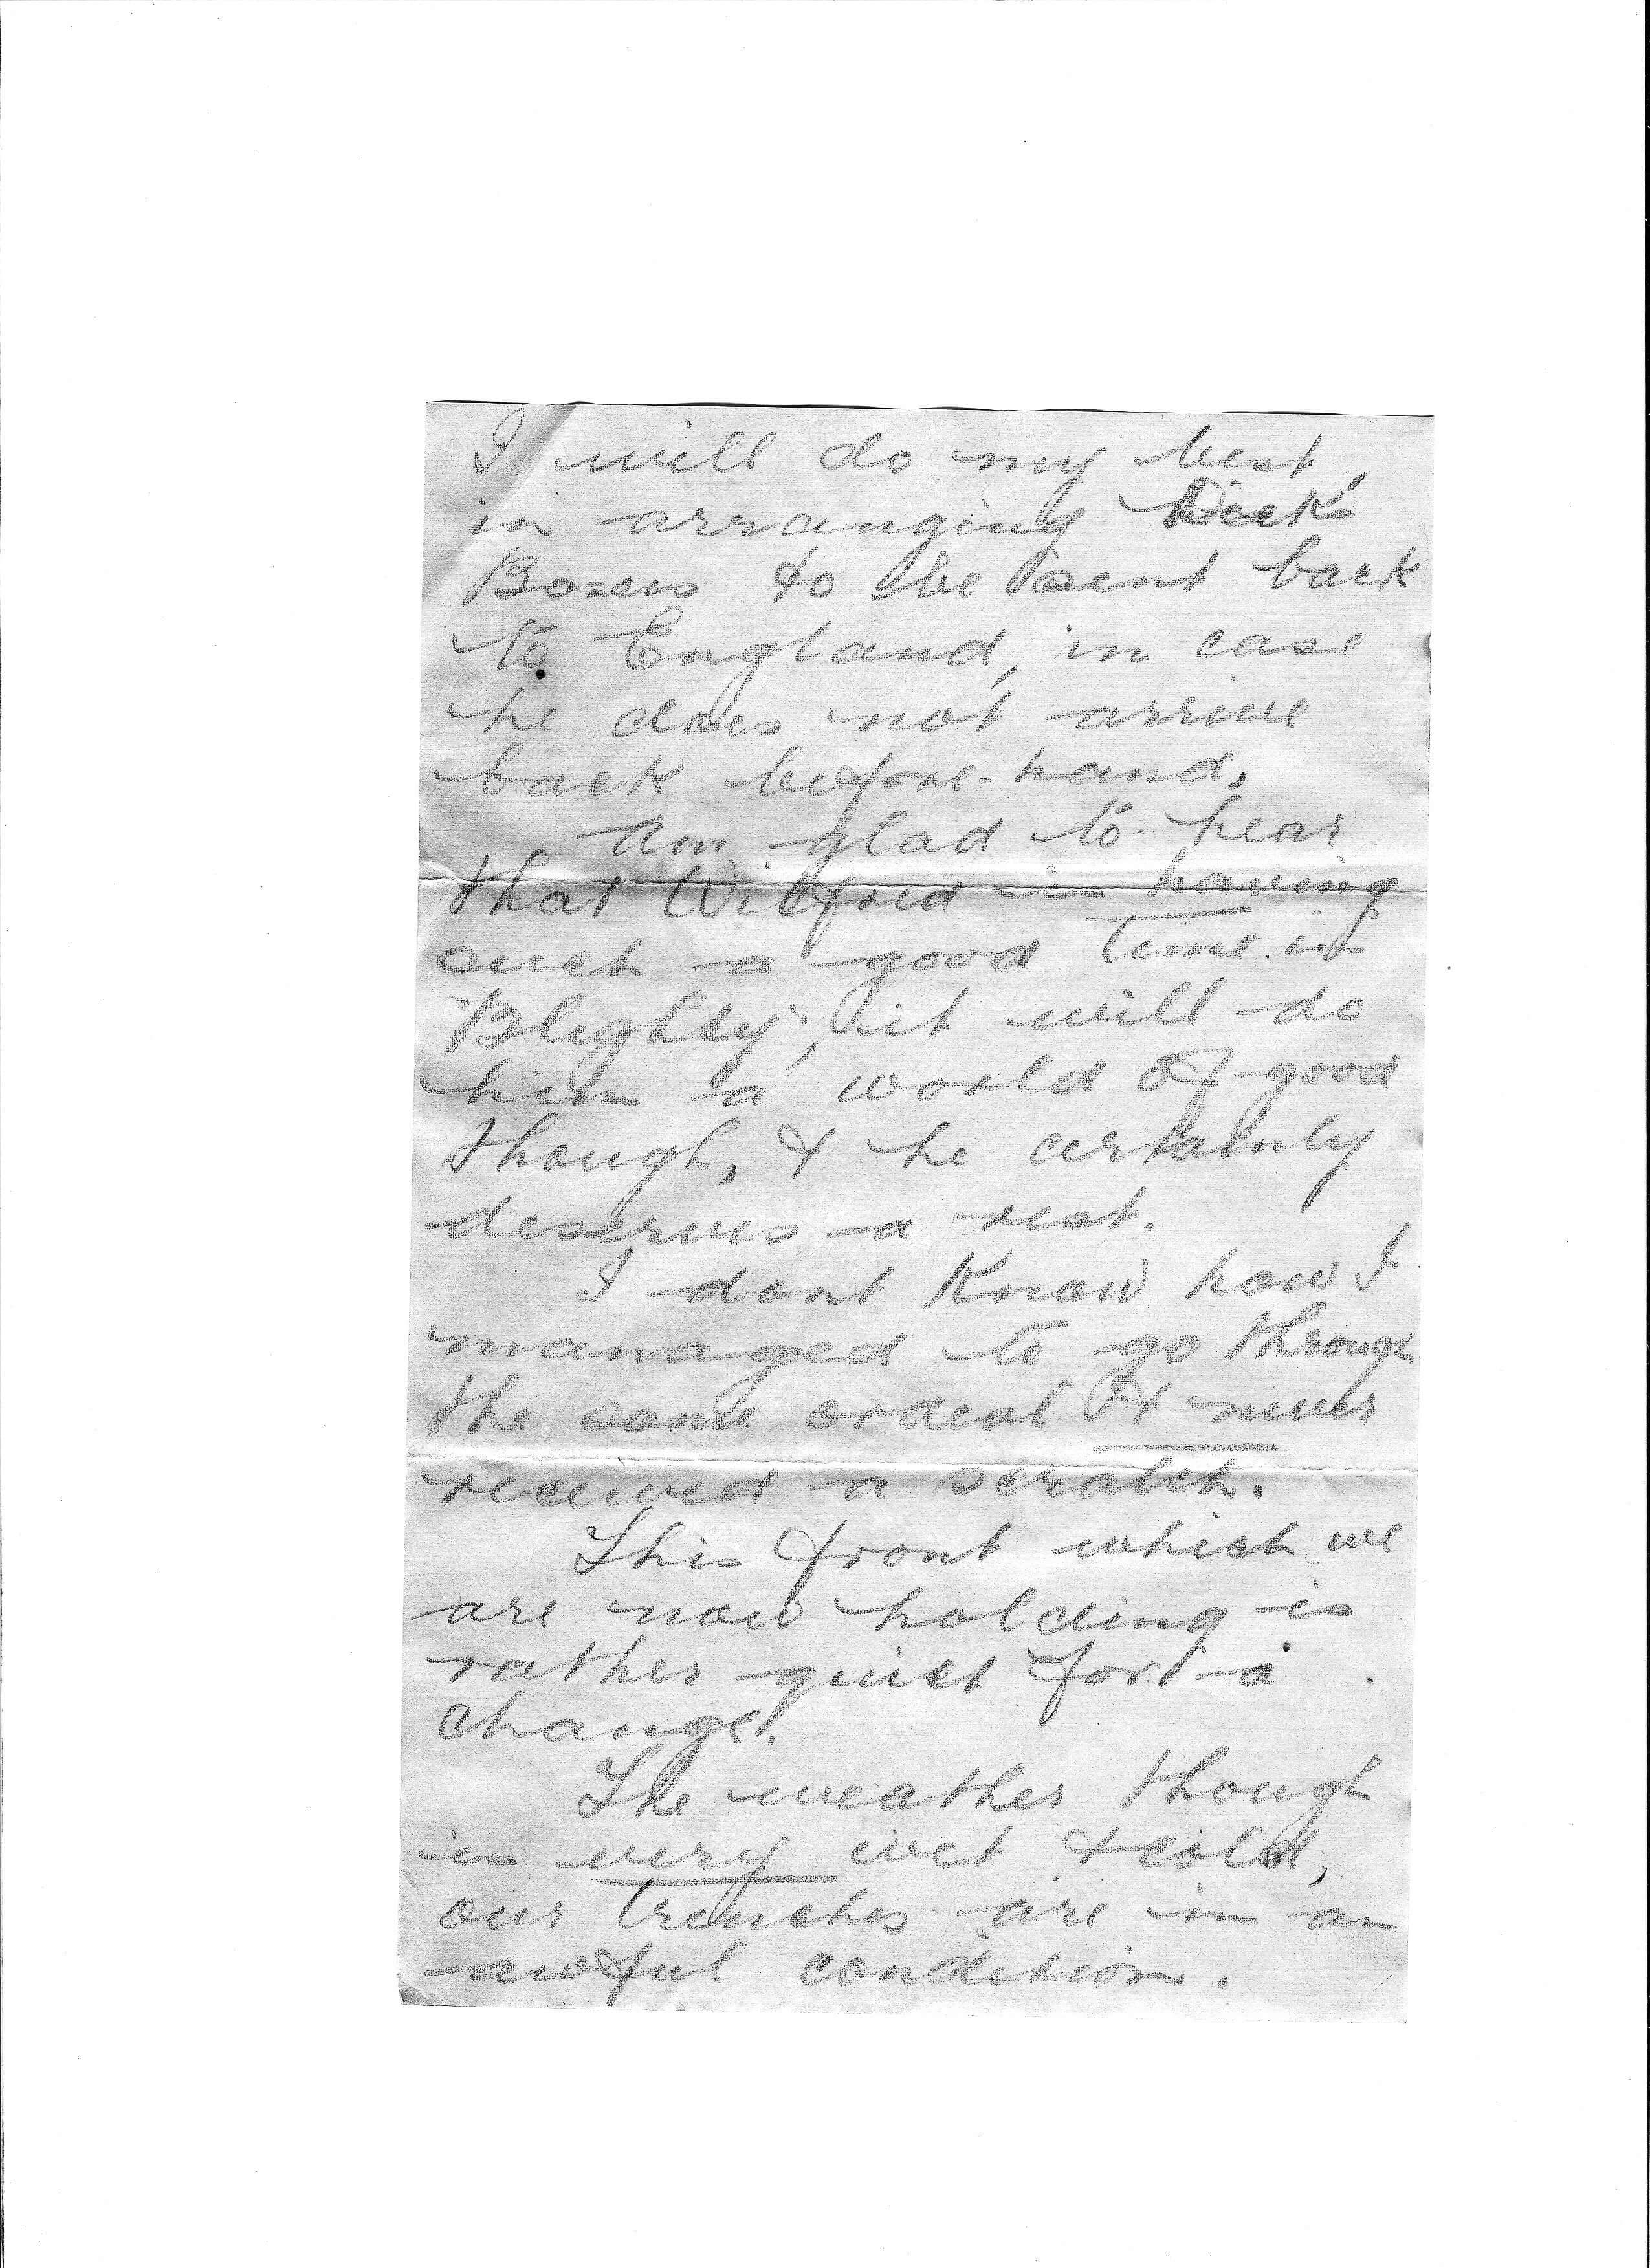 I will do my best,
in arranging Dick's
Boxes to be sent back
to England, in case
he does not arrive
back before-hand.
Am glad to hear
that Wilfred is having
such a good time in
"Blighty", it will do
him a world of good
though, & he certainly
deserves a rest.
I dont know how I
managed to go through
the same ordeal & never
received a scratch.
This front which we
are now holding is
rather quiet for a
change.
The weather though
is very wet & cold,
our trenches are in an
awful condition.